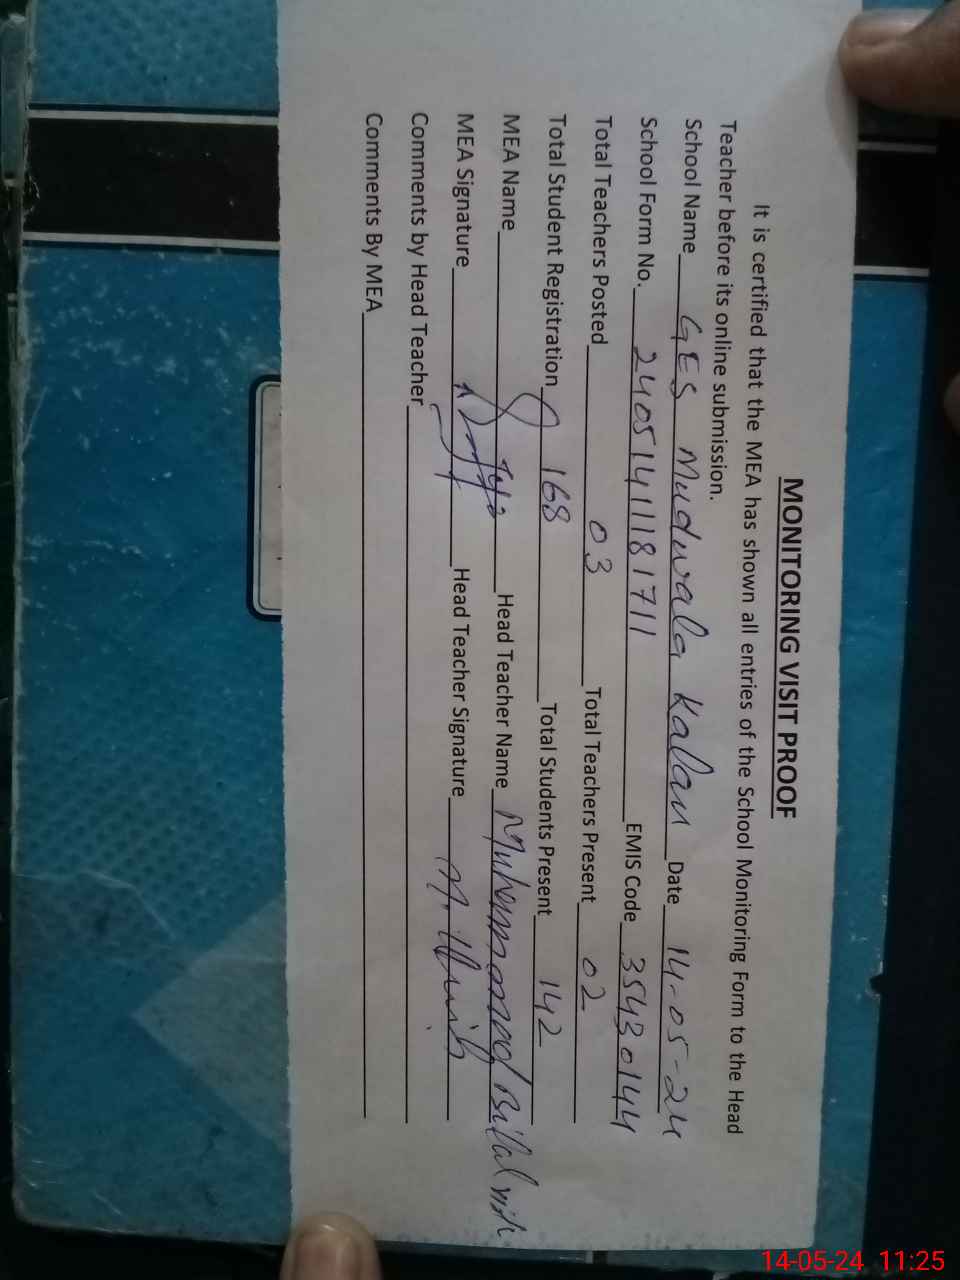 MONITORING VISIT PROOF
It is certified that the MEA has shown all entries of the School Monitoring Form to the Head
Teacher before its online submission.
School Name GES Mudwala Kalan Date 14-05-24
School Form No. 24051411181711 EMIS Code 35430144
Total Teachers Posted 03 Total Teachers Present 02
Total Student Registration 168 Total Students Present 142
MEA Name Head Teacher Name Muhammad Billal
MEA Signature Head Teacher Signature
Comments by Head Teacher
Comments By MEA
14-05-24 11:25